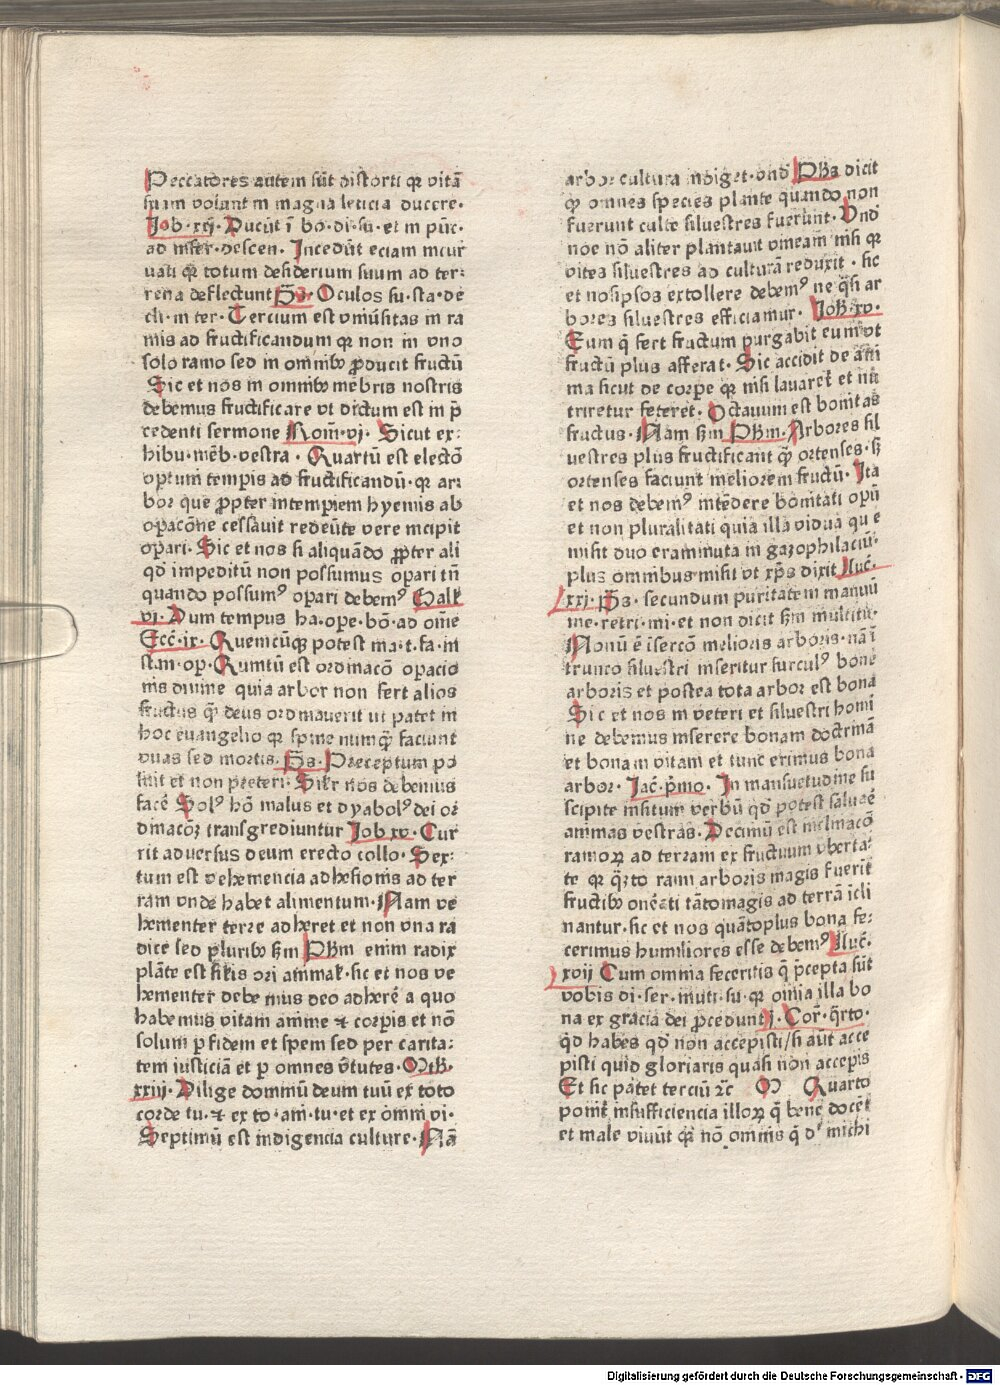 Peccatores autem sūt distorti qꝛ vitā
suam volunt in magna leticia ducere·
Job·xxj· Ducūt ī bo·di·su·et in pūc·
ad infer·descen· Incedūt eciam incur
uati qꝛ totum desiderium suum ad ter⸗
rena deflectunt p̄s· Oculos su·sta·de
cli·in ter· Tercium est vniūsitas in ra
mis ad fructificandum qꝛ non in vno
solo ramo sed in omnibꝰ ꝓducit fructū
Sic et nos in omnibꝰ mēbris nostris
debemus fructificare vt dictum est in p̄
cedenti sermone Rom̄·vj· Sicut ex⸗
hibu·mēb·vestra· Quartū est electō
optimi tempis ad fructificandū· qꝛ ar⸗
bor que ꝓpter intempiem hyemis ab
opacōne cessauit redeūte vere incipit
opari· Sic et nos si aliquādo ꝓpter ali
qd̄ impeditū non possumus opari tn̄
quando possumꝰ opari debemꝰ Gall
vj· Dum tempus ha·ope·bō·ad om̄e
Ecc̄·ix· Quemcūqꝫ potest ma·t·fa·in
stam·op· Quintū est ordinacō opacio
nis diuine quia arbor non fert alios
fructus q̄ deus ordinauerit vt patet in
hoc euangelio qꝛ spine nūmq̄ faciunt
vuas sed mortis· p̄s· Preceptum po
suit et non preteri· Silr nos debemus
facē Solꝰ hō malus et dyabolꝰ dei or
dinacōꝫ transgrediuntur Job xv· Cur
rit aduersus deum erecto collo· Sex⸗
tum est vehemencia adhesionis ad ter
ram vnde habet alimentum· Nam ve
hementer terre adheret et non vna ra
dice sed pluribꝰ s̄m Ph̄m enim radix
plāte est sil̄is ori animal̄·sic et nos ve
hementer debemus deo adherē a quo
habemus vitam anime ⁊ corpis et nō
solum p fidem et spem sed per carita⸗
tem iusticiā et p omnes v̄tutes· Mth̄·
xxiij· Dilige dominū deum tuū ex toto
corde tu·⁊ ex to·am̄·tu·et ex omni vi·
Septimū est indigencia culture· Nā
arbor cultura indiget·vnd̄ Ph̄s dicit
q̄ omnes species plante quando non
fuerunt culte siluestres fuerunt· Vnd̄
noe nō aliter plantauit vineam nisi qꝛ
vites siluestres ad culturā reduxit· sic
et nosipsos extollere debemꝰ ne q̄si ar
bores siluestres efficiamur· Joh̄·xv·
Eum q̄ fert fructum purgabit eum vt
fructū plus afferat· Sic accidit de ani
ma sicut de corpe qꝛ nisi lauaret et nu
triretur feteret· Octauum est bonitas
fructus· Nam s̄m Ph̄m· Arbores sil
uestres plus fructificant q̄ ortenses·s̄
ortenses faciunt meliorem fructū· Ita
et nos debemꝰ intēdere bonitati opū
et non pluralitati quia illa vidua que
misit duo eraminuta in gazophilaciū·
plus omnibus misit vt xp̄s dixit Luc̄·
xxj· p̄s· secundum puritatem manuū
me·retri·mi·et non dicit s̄m multitu·
Nonū ē īsercō melioris arboris·nā ī
trunco siluestri inseritur surculꝰ bone
arboris et postea tota arbor est bona
Sic et nos in veteri et siluestri homi
ne debemus inserere bonam doctrinā
et bonam vitam et tunc erimus bona
arbor· Jac̄·p̄mo· In mansuetudine su
scipite insitum verbū qd̄ potest saluaē
animas vestras· Decimū est inclinacō
ramoꝝ ad terram ex fructuum vberta⸗
te qꝛ q̄ꝫto rami arboris magis fuerīt
fructibꝰ oneāti tātomagis ad terrā īcli
nantur·sic et nos quātoplus bona fe⸗
cerimus humiliores esse debemꝰ Luc̄·
xvij Cum omnia feceritis q̄ p̄cepta sūt
vobis di·ser·inuti·su·qꝛ om̄ia illa bo
na ex gracia dei ꝓcedunt j· Cor̄·q̄rto·
q̄d habes qd̄ non accepisti/si aūt acce
pisti quid gloriaris quasi non accepis
Et sic patet terciū ⁊c̄ M Quarto
ponit̄ insufficiencia illoꝝ q̄ bene docēt
et male viuūt qꝛ nō omnis q̄ dꝰ michi
Digitalisierung gefördert durch die Deutsche Forschungsgemeinschaft - DFG